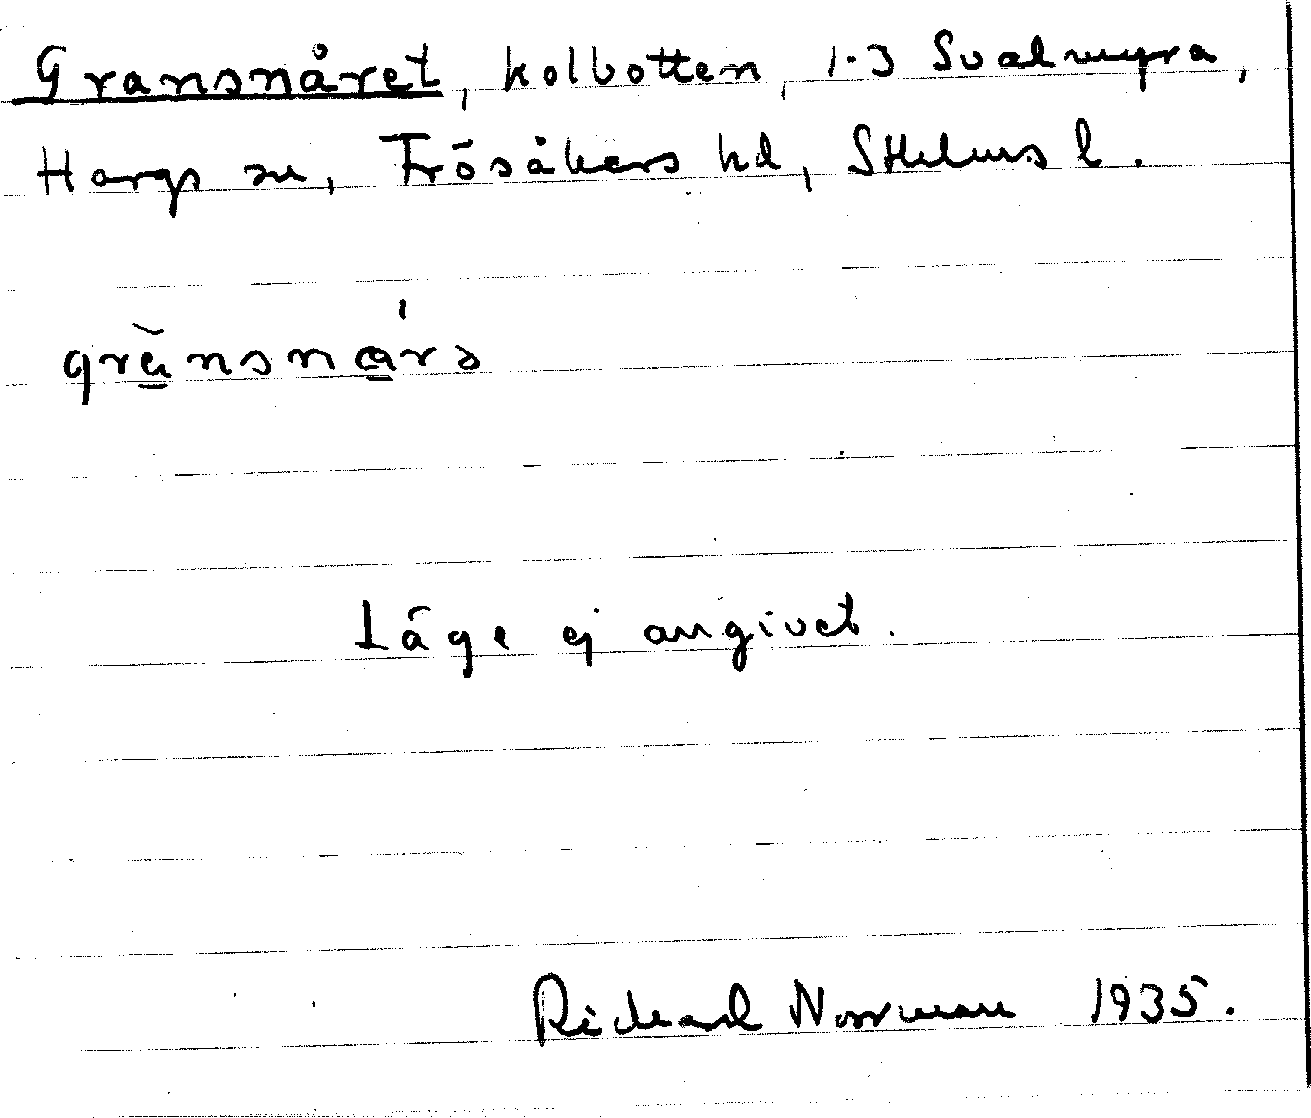 Gransnåret, kolbotten, 1-3 Svalmyra,
Hargs sn, Frösåkers hd, Sthlms l.
grănsnárə
Läge ej angivet.
Richard Norrman 1935.